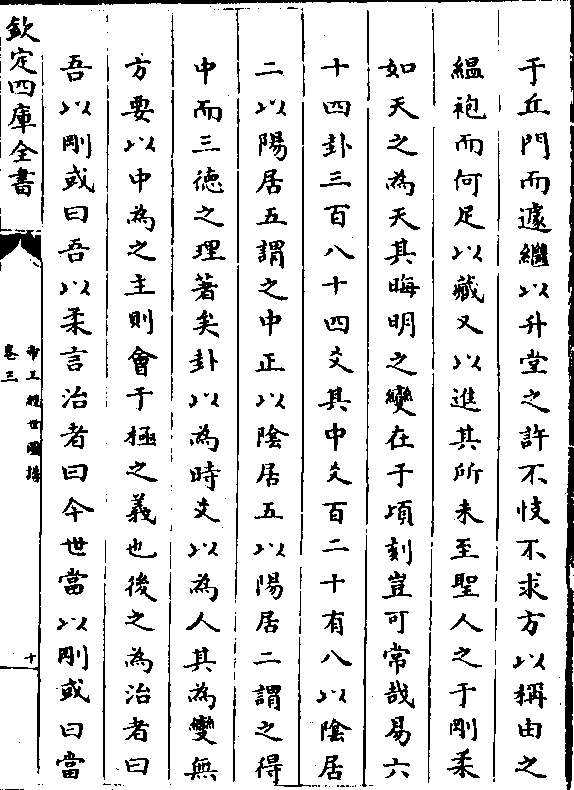 于丘門而遽繼以升堂之許不忮不求方以稱由之
緼袍而何足以藏又以進其所未至聖人之于剛柔
如天之為天其晦明之變在于頃刻豈可常哉易六
十四卦三百八十四爻其中爻百二十有八以陰居
二以陽居五謂之中正以陰居五以陽居二謂之得
中而三德之理著矣卦以為時爻以為人其為變無
方要以中為之主則會于極之義也後之為治者曰
吾以剛或曰吾以柔言治者曰今世當以剛或曰當
欽定四庫全書
帝王經世圖譜
卷三
十